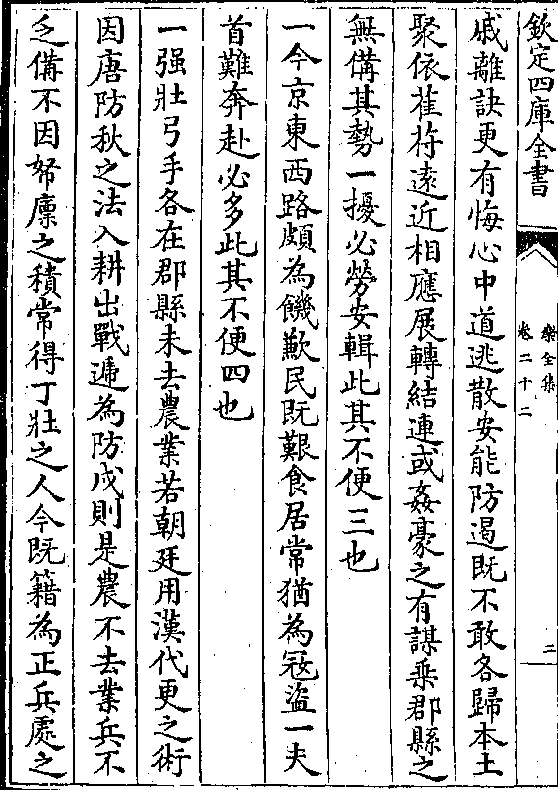 欽定四庫全書
樂全集
卷二十二
二
戚離訣更有悔心中道逃散安能防遏既不敢各歸本土
聚依萑苻遠近相應展轉結連或姦豪之有謀乗郡縣之
無備其勢一擾必勞安輯此其不便三也
一今京東西路頗為饑歉民既艱食居常猶為冦盜一夫
首難奔赴必多此其不便四也
一强壯弓手各在郡縣未去農業若朝廷用漢代更之術
因唐防秋之法入耕出戰遞為防戍則是農不去業兵不
乏備不因帑廩之積常得丁壯之人今既籍為正兵處之